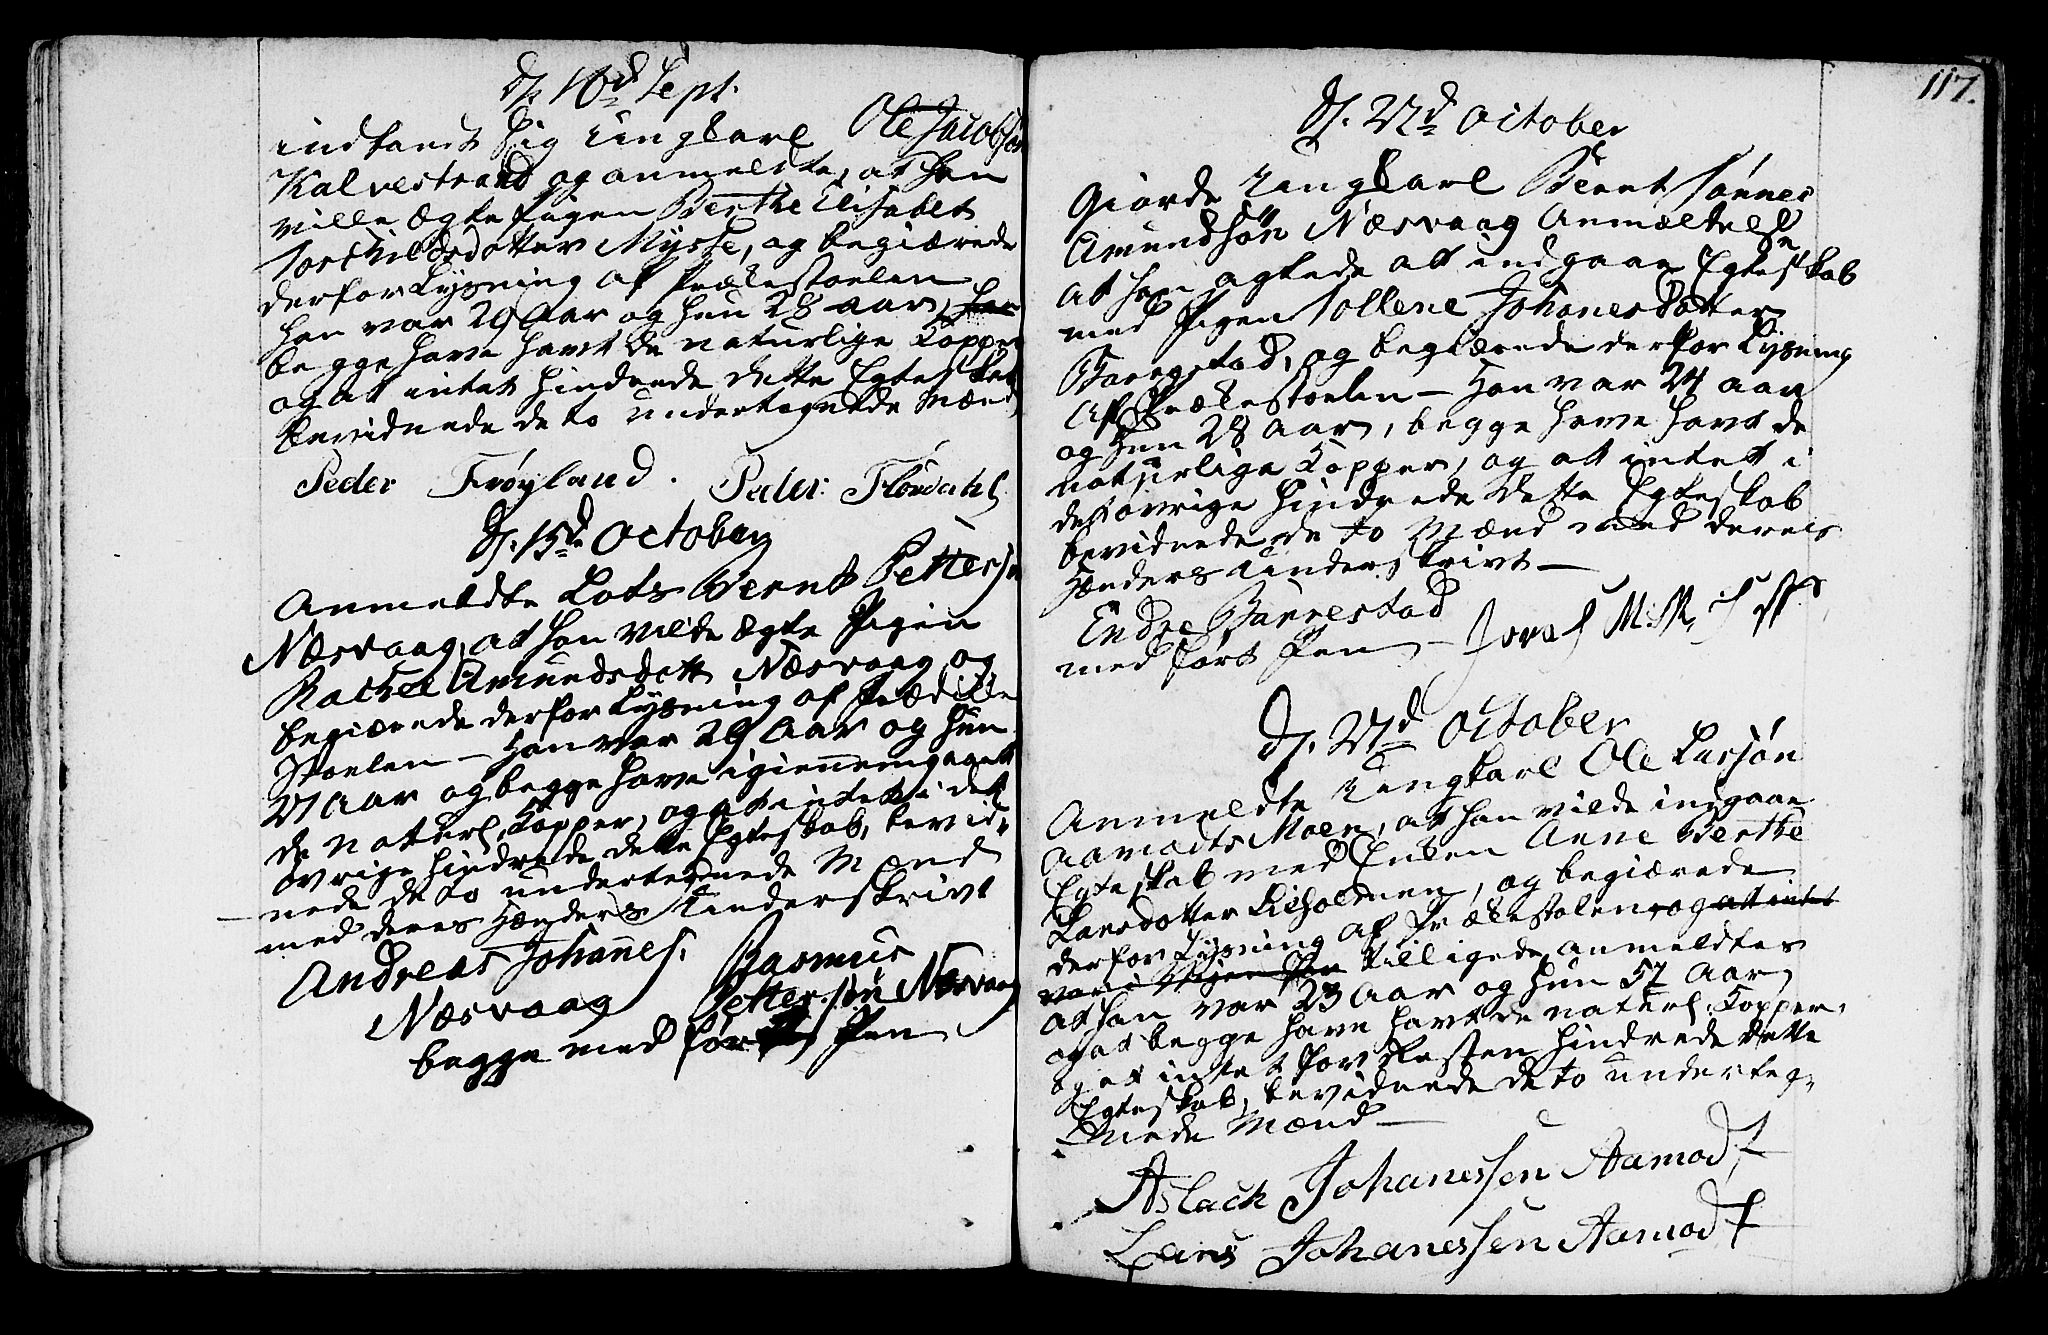 d. 10d Sept.
indfandt sig Ungkarl Ole Jacobsøn
Kalvestrand og anmeldte, at han
ville ægte Pigen Berthe Elisabet
Torchildsdotter Mysse, og begiærede
derfor Lysning af Prækestoelen
han var 29 Aar og hun 28 aar, han
begge have havt de naturlige Kopper
og at intet hindrede dette Egteskab
bevidnede de to undertegnede Mænd
Peder Frøyland. Peder Flørdahl
d. 15de October
Anmeldte Lots Bernt Pettersøn
Næsvaag, at han vilde ægte Pigen
Rachel Amundsdott Næsvaag og
begiærede derfor Lysning af Prædike
Stoelen – Han var 29 Aar og hun
27 Aar og begge have igiennemgaaet
de naturl. Kopper, og at intet i det
øvrige hindrede dette Egteskab, bevid-
nede de to undertegnede Mænd
med deres Hænders Underskrivt
Andreas Johannes. Rasmus
Næsvaag Pettersøn Næsvaag
begge med ført Pen
117.
d. 22d October
Giorde Ungkarl Bernt Tønnes
Amundsøn Næsvaag Anmældelse
at han agtede at indgaae Egteskab
med Pigen Tollene Johanesdotter
Barrestad, og begiærede derfor Lysning
af Prækestoelen – Han var 24 aar
og hun 28 Aar, begge have havt de
naturlige Kopper, og at intet i
det øvrige hindrede dette Egteskab
bevidnede de to Mænd med deres
Hænders Underskrivt –
Endre Barrestad
med ført Pen –
d. 27d October
Anmeldte Ungkarl Ole Larsøn
Aamodts Moen, at han vilde indgaae
Egteskab med Enken Anne Berthe
Larsdotter Lilholmen, og begiærede
derfor Lysning af Prækestolen, og at intet
tilligede anmeldtes
at han var 23 Aar og hun 57 Aar
og at begge have havt de naturl. Kopper,
og at intet for Resten hindrede dette
Egteskab, bevidnede de to underteg-
nede Mænd –
Aslach Johanessen Aamodt
Lars Johanessen Aamodt